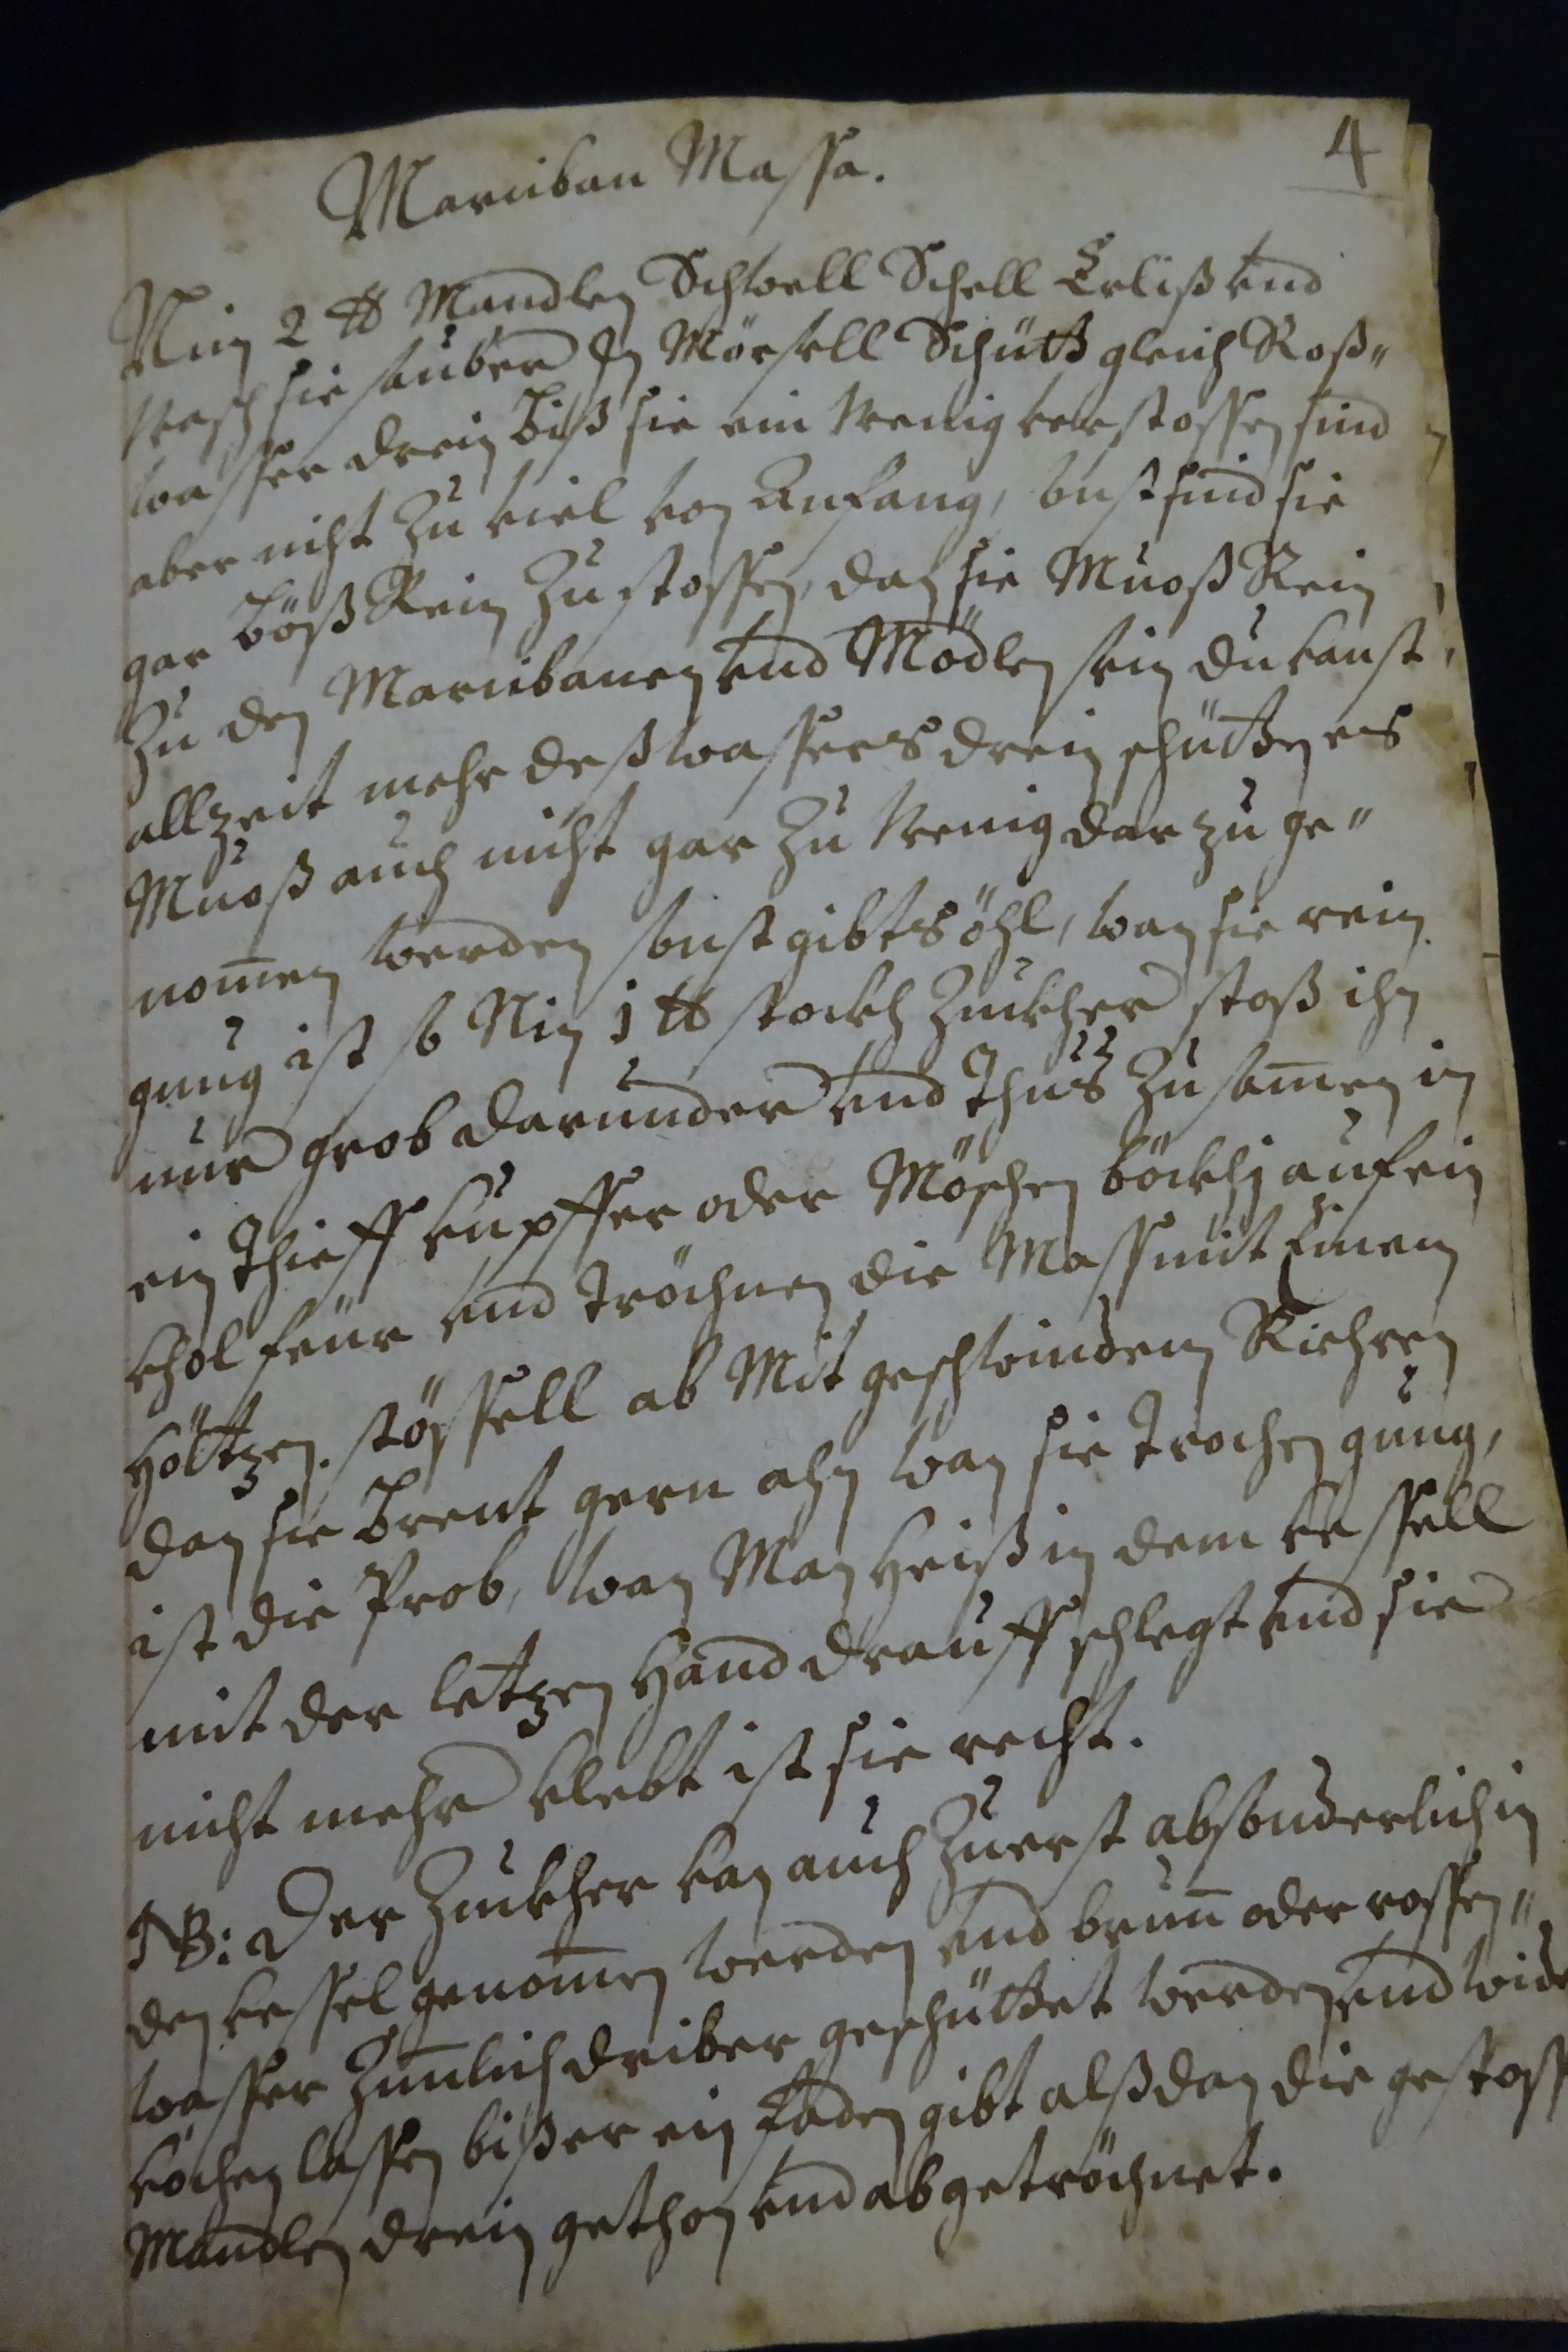 4
Marciban Massa.
Nim 2 ℔ Mandlen Schwell Schell Erliß und
wasch sie sauber Jn Mörsell Schütt gleich Roß„
wasser drein biß sie ein wenig verstossen sind
aber nicht Zu viel von Anfang, sonst sind sie
gar böß Rein Zu stossen, dan sie Muoß Rein
Zu den Marcibanen und Mödlen sein du kanst
allzeit mehr deß wassers drein schütten es
Muoß auch nicht gar Zu wenig dar zu ge„
nom̄en werden sonst gibts öhl, wan sie rein
gnug ist so Nim 1 ℔ stockh Zuckher stoß ihn
nur grob darunder und Thus Zusam̄en in
ein Thieff kupffer oder Möschen böckhj auf ein
khol feür und Tröchnen die Mass mit Einem
höltzen stössell ab Mit geschwindem Riehren
dan sie brent gern ahn wan sie Trochen gnug,
ist die Prob, wan Man heiß in dem kessell
mit der letzen Hand drauff schlegt und sie
nicht mehr klebt ist sie recht.
NB: Der Zuckher kan auch Zuerst absonderlich in
den kessel genom̄en werden und brun̄ oder rossen„
wasser Zimlich driber geschüttet werden und wide
kochen lassen bißer ein faden gibt alßdan die gestoss
Mandlen drein gethon und abgetröchnet.